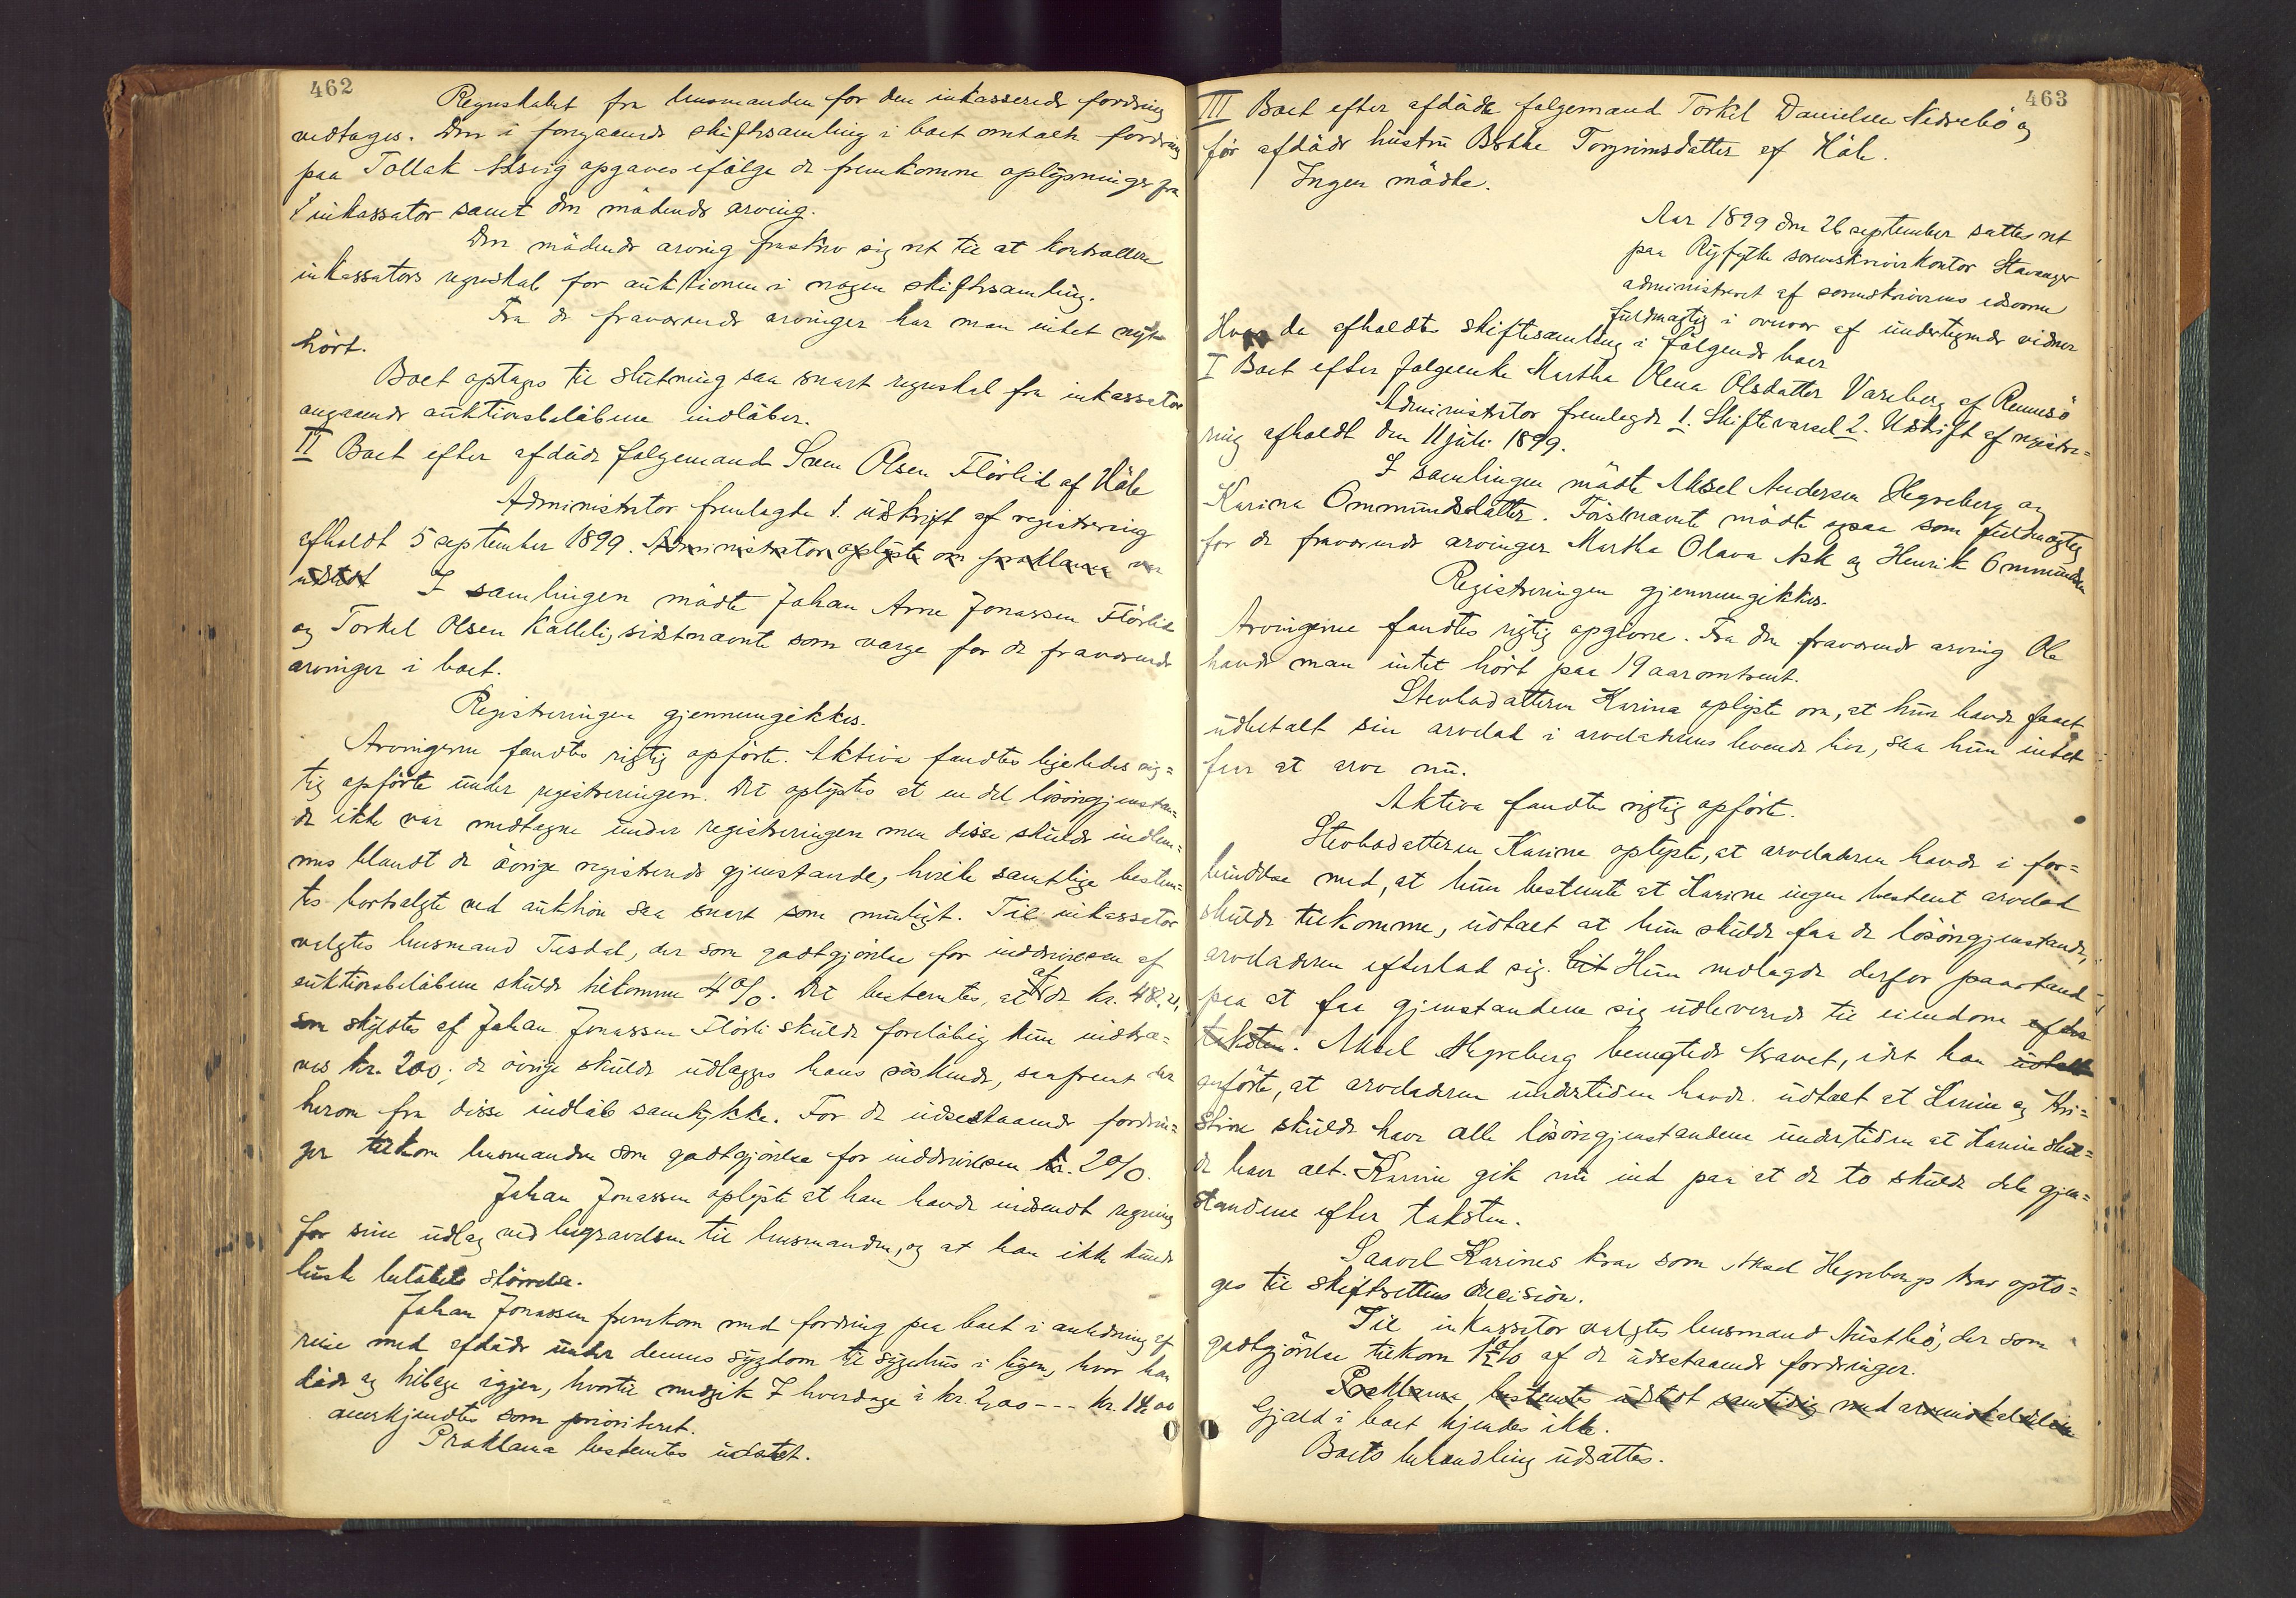 462
Regnskabet fra lensmanden for den inkasserede fordring
vedtages. Den i forrgaaende skiftesamling i boet omtalte fordring
paa Tollak opgaves ifølge de fremkomne oplysninger fra
inkassator samt den mödende arving.
Den mödende arving fraskrev sig ret til at kontrollere
inkassators regnskab for auktionen i nogen skiftesamling.
Fra de fraværende arvinger har man intet nyt
hört.
Boet optages til slutning saa snart regnskab fra inkassator
angaaende auktionsbelöbene indlöber.
II Boet efter afdöde folgemand Sven Olsen Flörlid af Höle
Administrator fremlagde 1. udskrift af registrering
afholdt 5 september 1899. Administrator oplyste om proklama var
udstedt I samlingen mödte Johan Arne Jonassen Flörlid
og Torkel Olsen Kalleli, sidstnævnte som værge for de fraværende
arvinger i boet.
Registreringen gjennemgikkes.
Arvingerne fandtes rigtig opförte. Aktiva fandtes ligeledes rig=
tig opförte under registreringen. Det oplystes at en del lösöregjenstan=
de ikke var medtagne under registreringen men disse skulde indlem=
mes blandt de övrige registrerede gjenstande, hvilke samtlige bestem=
tes bortsolgte ved auktion saa snart som muligt. Til inkassator
valgtes lensmand Tisdal, der som godtgjörelse for inddrivelsen af
auktionsbelöbene skulde tilkomme 4%. Det bestemtes, at af de kr. 482,21,
som skyldtes af Johan Jonassen Flörli skulde foreløbig kun inddra=
ves kr. 200; de övrige skulde udlægges hans söskende, saafremt der
herom fra disse indlöb samtykke. For de udestaaende fordrin=
ger tilkom lensmanden som godtgjörelse for inddrivelsen kr. 2%.
Johan Jonassen oplyste at han havde indsendt regning
for sine udlæg ved begravelsen til lensmanden, og at han ikke kunde
huske belöbets störrelse.
Johan Jonassen fremkom med fordring paa boet i anledning af
reise med afdöde under dennes sygdom til sygehus i byen, hvor han
döde og tilbage igjen, hvortil medgik 7 hverdage à kr. 2,00 --- kr. 14,00
anerkjendtes som prioriteret.
Proklama bestemtes udstedt.
463
III Boet efter afdöde folgemand Torkel Danielsen Nedrebö og
för afdöde hustru Berthe Torgrimsdatter af Höle.
Ingen mödte.
Aar 1899 den 26 september sattes ret
paa Ryfylke sorenskriverkontor Stavanger
administreret af sorenskriverens edsvorne
fuldmægtig i overvær af undertegnede vidner
Hvor da afholdtes skiftesamling i følgende boer
I Boet efter folgeenke Martha Olena Olsdatter Vareberg af Rennesö
Administrator fremlagde 1. Skiftevarsel 2. Udskrift af registre=
ring afholdt den 11 juli 1899.
I samlingen mödte Aksel Andersen Hegreberg og
Karina Ommundsdatter. Förstnævnte mödte ogsaa som fuldmægtig
for de fraværende arvinger Martha Olava Ask og Henrik Ommundsen
Registreringen gjennemgikkes.
Arvingerne fandtes rigtig opgivne. Fra den fraværende arving Ole
havde man intet hört paa 19 aar omtrent.
Stevbodatteren Karina oplyste om, at hun havde faaet
udbetalt sin arvelod i arveladerens levende live, saa hun intet
faar at arve nu.
Aktiva fandtes rigtig opförte.
Stevbodatteren Karine oplyste, at arveladeren havde i for=
bindelse med, at hun bestemte at Karine ingen bestemt arvelod
skulde tilkomme, udtalt at hun skulde faa de lösöregjenstande,
arveladeren efterlod sig. Hun nedlagde derfor paastand
paa at faa gjenstandene sig udleverede til eiendom efter
taksten. Aksel Hegreberg benegtede kravet, idet han udtalte
anförte, at arveladeren undertiden havde udtalt at Karine og Kri=
stine skulde have alle lösöregjenstandene undertiden at Karine skul=
de have alt. Karine gik nu ind paa at de to skulde dele gjen=
standene efter taksten.
Saavel Karines krav som Aksel Hegrebergs krav opto=
ges til skifterettens decision.
Til inkassator valgtes lensmand Austbö, der som
godtgjörelse tilkom 1½% af de udestaaende fordringer.
Proklama bestemtes udstedt samtidig med
Gjæld i boet kjendes ikke.
Boets behandling udsattes.